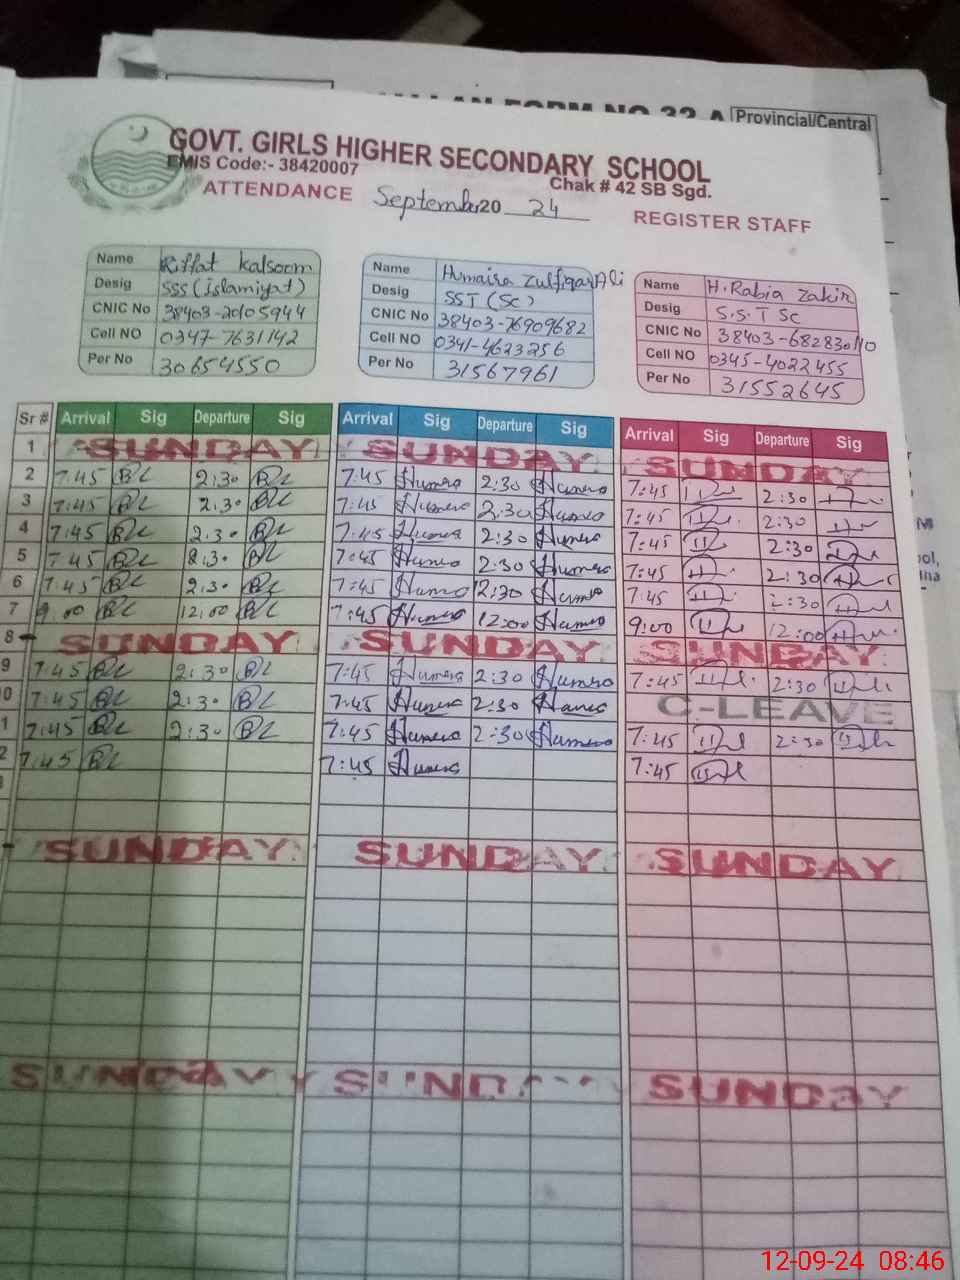 CHALLAN FORM NO 32-A
Provincial/Central
GOVT. GIRLS HIGHER SECONDARY SCHOOL
EMIS Code:- 38420007
Chak # 42 SB Sgd.
ATTENDANCE September 2024 REGISTER STAFF
Name Riffat Kalsoom
Desig SSS (islamiyat)
CNIC No 38403-2005944
Cell NO 0347-7631142
Per No 30654550
Name Humaira Zulfiqar Ali
Desig SST (Sc)
CNIC No 38403-76909682
Cell NO 0341-4623256
Per No 31567961
Name H.Rabia Zakir
Desig S.S.T Sc
CNIC No 38403-68283010
Cell NO 0345-4022455
Per No 31552645
Sr # Arrival Sig Departure Sig Arrival Sig Departure Sig Arrival Sig Departure Sig
1 SUNDAY SUNDAY SUNDAY
2 7:45 2:30 7:45 Humera 2:30 Humera 7:45 2:30
3 7:45 2:30 7:45 Humera 2:30 Humera 7:45 2:30
4 7:45 2:30 7:45 Humera 2:30 Humera 7:45 2:30
5 7:45 2:30 7:45 Humera 2:30 Humera 7:45 2:30
6 7:45 2:30 7:45 Humera 2:30 Humera 7:45 2:30
7 9:00 12:00 7:45 Humera 12:00 Humera 9:00 12:00
8 SUNDAY SUNDAY SUNDAY
9 7:45 2:30 7:45 Humera 2:30 Humera 7:45 2:30
0 7:45 2:30 7:45 Humera 2:30 Humera C-LEAVE
1 7:45 2:30 7:45 Humera 2:30 Humera 7:45 2:30
2 7:45 7:45 Humera 7:45
SUNDAY SUNDAY SUNDAY
SUNDAY SUNDAY SUNDAY
12-09-24 08:46